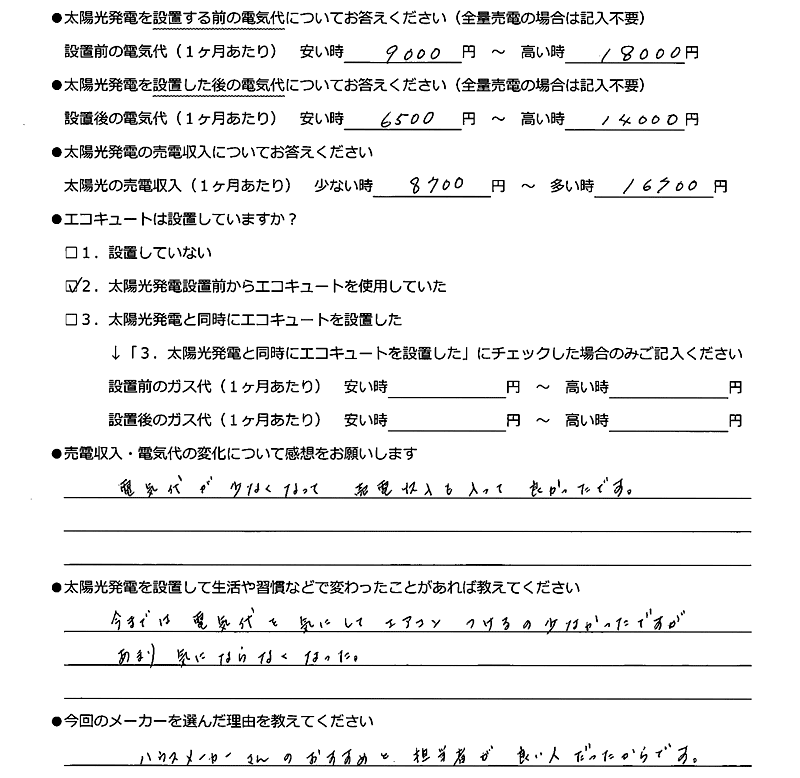 ●太陽光発電を設置する前の電気代についてお答えください（全量売電の場合は記入不要）
設置前の電気代（１ヶ月あたり） 安い時 9000 円 ～ 高い時 18000 円
●太陽光発電を設置した後の電気代についてお答えください（全量売電の場合は記入不要）
設置後の電気代（１ヶ月あたり） 安い時 6500 円 ～ 高い時 14000 円
●太陽光発電の売電収入についてお答えください
太陽光の売電収入（１ヶ月あたり） 少ない時 8700 円 ～ 多い時 16700 円
●エコキュートは設置していますか？
□１．設置していない
☑２．太陽光発電設置前からエコキュートを使用していた
□３．太陽光発電と同時にエコキュートを設置した
↓「３．太陽光発電と同時にエコキュートを設置した」にチェックした場合のみご記入ください
設置前のガス代（１ヶ月あたり） 安い時 円 ～ 高い時 円
設置後のガス代（１ヶ月あたり） 安い時 円 ～ 高い時 円
●売電収入・電気代の変化について感想をお願いします
電気代が少なくなって 売電収入も入って 良かったです。
●太陽光発電を設置して生活や習慣などで変わったことがあれば教えてください
今までは 電気代を気にして エアコン つけるの少なかったですが
あまり気にならなくなった。
●今回のメーカーを選んだ理由を教えてください
ハウスメーカーさんのおすすめと 担当者が良い人だったからです。